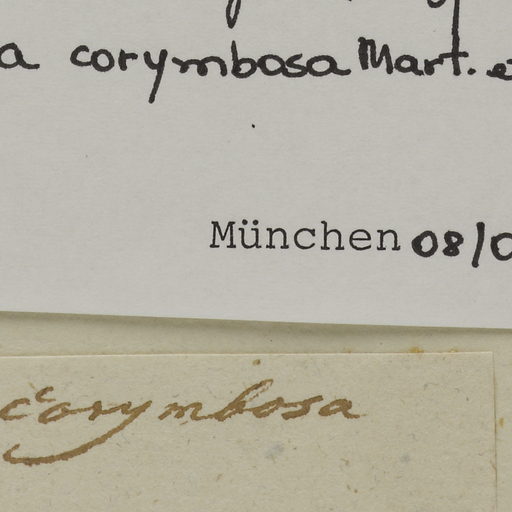 a corymbosa Mart. e
München 08/0
corymbosa